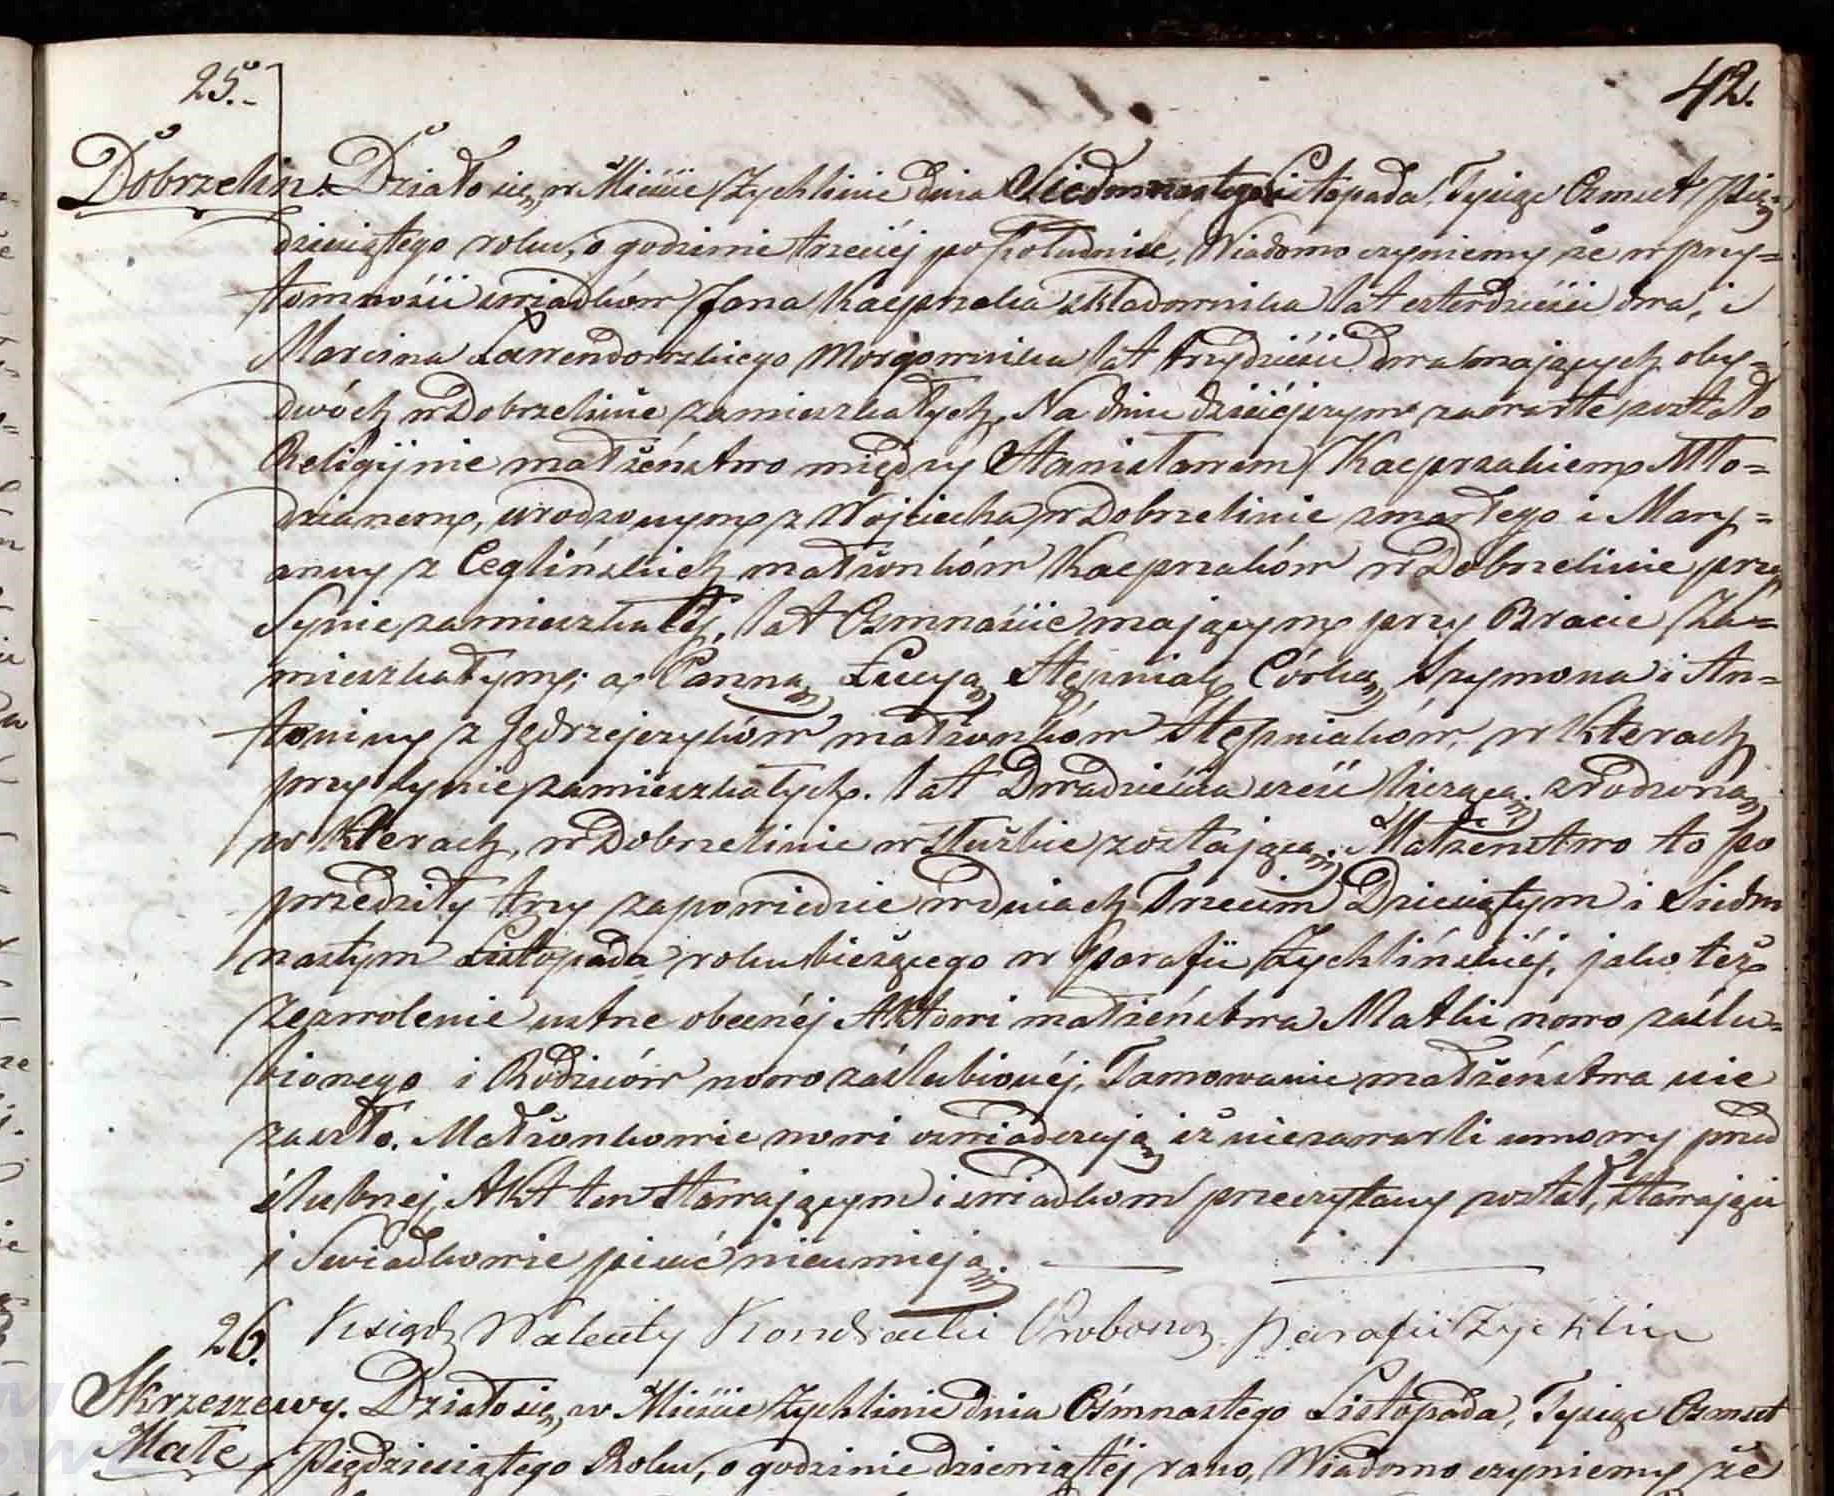 25.
42.
Dobrzelin. Działo się, w Mieście Żychlinie dnia Siedmnastego Listopada, Tysiąc Ośmset Pięć=
dziesiątego roku, o godzinie trzeciéj po południu, Wiadomo czyniemy że w przy=
tomności świadków Jana Kacprzaka okładownika lat czterdzieści dwa, i
Marcina Lewendowskiego Morgownika lat trzydzieści dwa mających, oby=
dwóch w Dobrzelinie zamieszkałych, Na dniu dziśiéjszym zawarte zostało
Religijnie małżeństwo między Stanisławem Kacprzakiem Mło=
dzianem, urodzonym z Wojciecha w Dobrzelinie zmarłego i Mary=
anny z Ceglińskich małżonków Kacprzaków w Dobrzelinie przy
Synie zamieszkałéj, lat Ośmnaście mającym przy Bracie Za=
mieszkałym; a Panną Łucyą Stępniak, Córką Szymona i An=
toniny z Jędrzejczyków małżonków Stępniaków, w Kterach
przy synie zamieszkałych. lat Dwadzieścia sześć liczącą, zrodzoną
w Kterach, w Dobrzelinie w służbie zostającą. Małżeństwo to po
przedziły trzy zapowiedzie w dniach Trzecim Dziesiątym i Siedm
nastym Listopada roku bieżącego w Parafii Żychlińskiéj, jako też
Zezwolenie ustne obecnéj Aktowi małżeństwa Matki nowo zaślu=
bionego i Rodziców nowo zaślubionéj, Tamowanie małżeństwa nie
zaszło. Małżonkowie nowi oswiadczają iż niezawarli umowy przed
ślubnej, Akt ten stawającym i swiadkom przeczytany został, stawający
i Swiadkowie pisać nieumieją.
Ksiądz Walenty Kondracki Proboszcz Parafii Żychlin
26.
Skrzeszewy. Działo się, w Mieście Żychlinie dnia Ośmnastego Listopada, Tysiąc Ośmset
Małe Pięćdziesiątego Roku, o godzinie dziewiątéj rano, Wiadomo czyniemy że